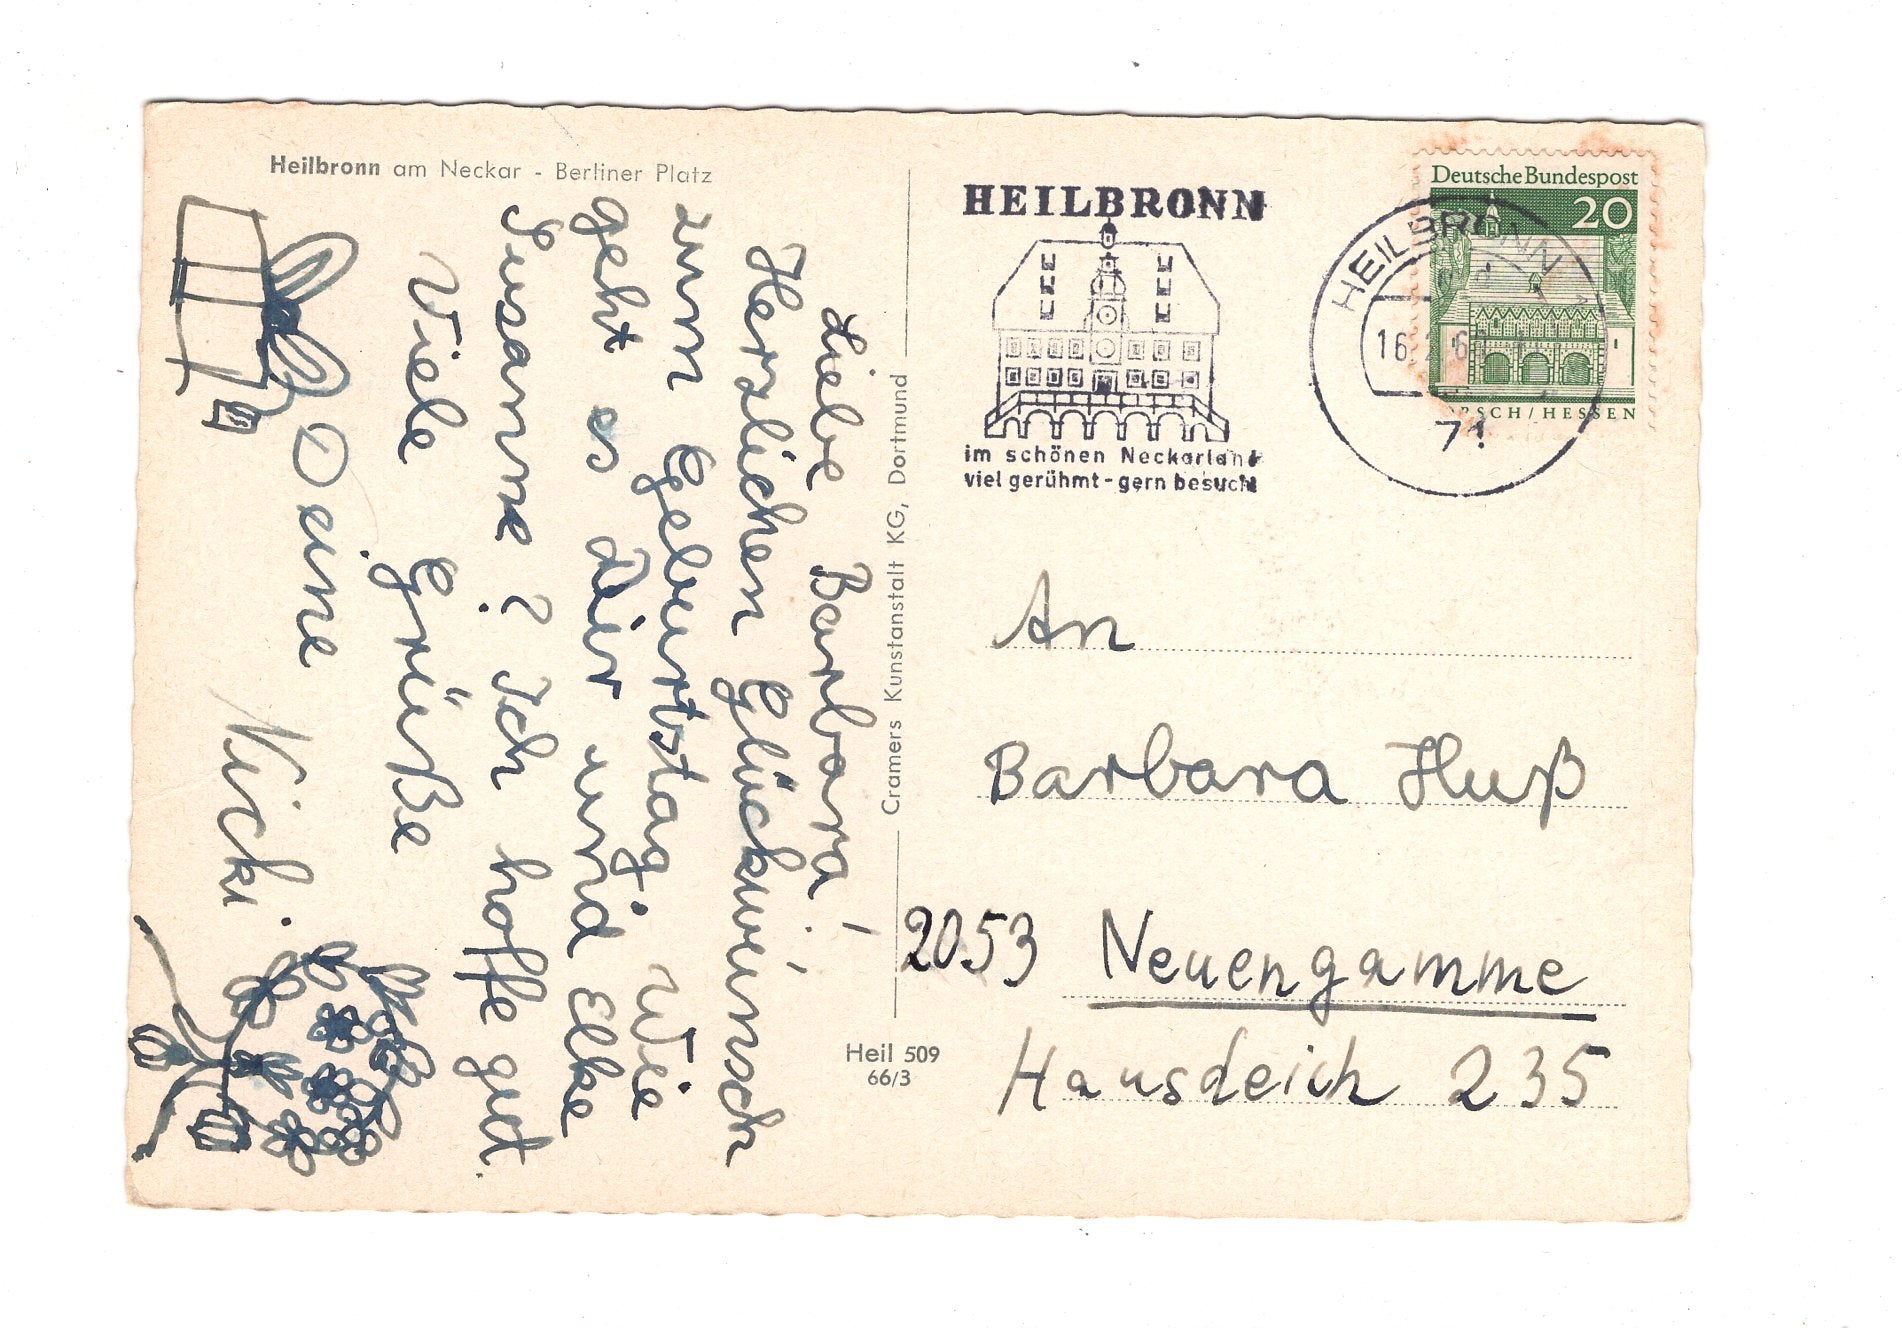 Heilbronn am Neckar - Berliner Platz
Liebe Barbara!
Herzlichen Glückwunsch
zum Geburtstag. Wie
geht es Dir und Elke
Susanne? Ich hoffe gut.
Viele Grüße
Deine
Nicki.
Cramers Kunstanstalt KG, Dortmund
Heil 509
66/3
HEILBRONN
im schönen Neckarland
viel gerühmt - gern besucht
HEILBRONN
16.2.6
71
Deutsche Bundespost
20
LORSCH/HESSEN
An
Barbara Huß
2053 Neuengamme
Hausdeich 235